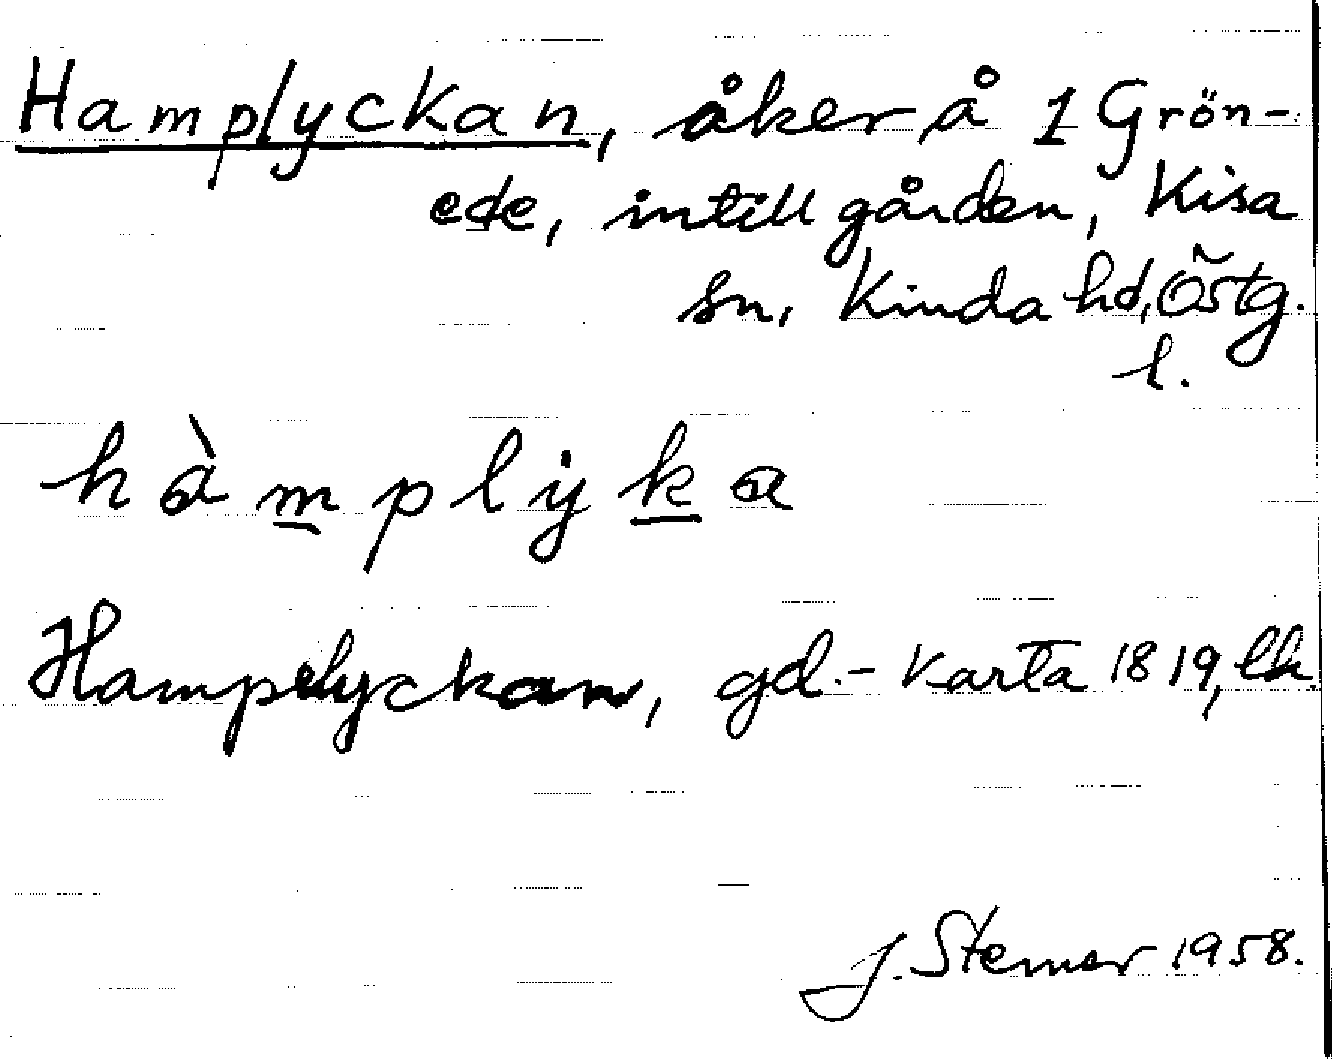 Hamplyckan, åker å 1 Grön-
ede, intill gården, Kisa
sn, Kinda hd, Östg.
l.
hàmplyka
Hampelyckan, gd. - Karta 1819, lk.
J. Stemer 1958.